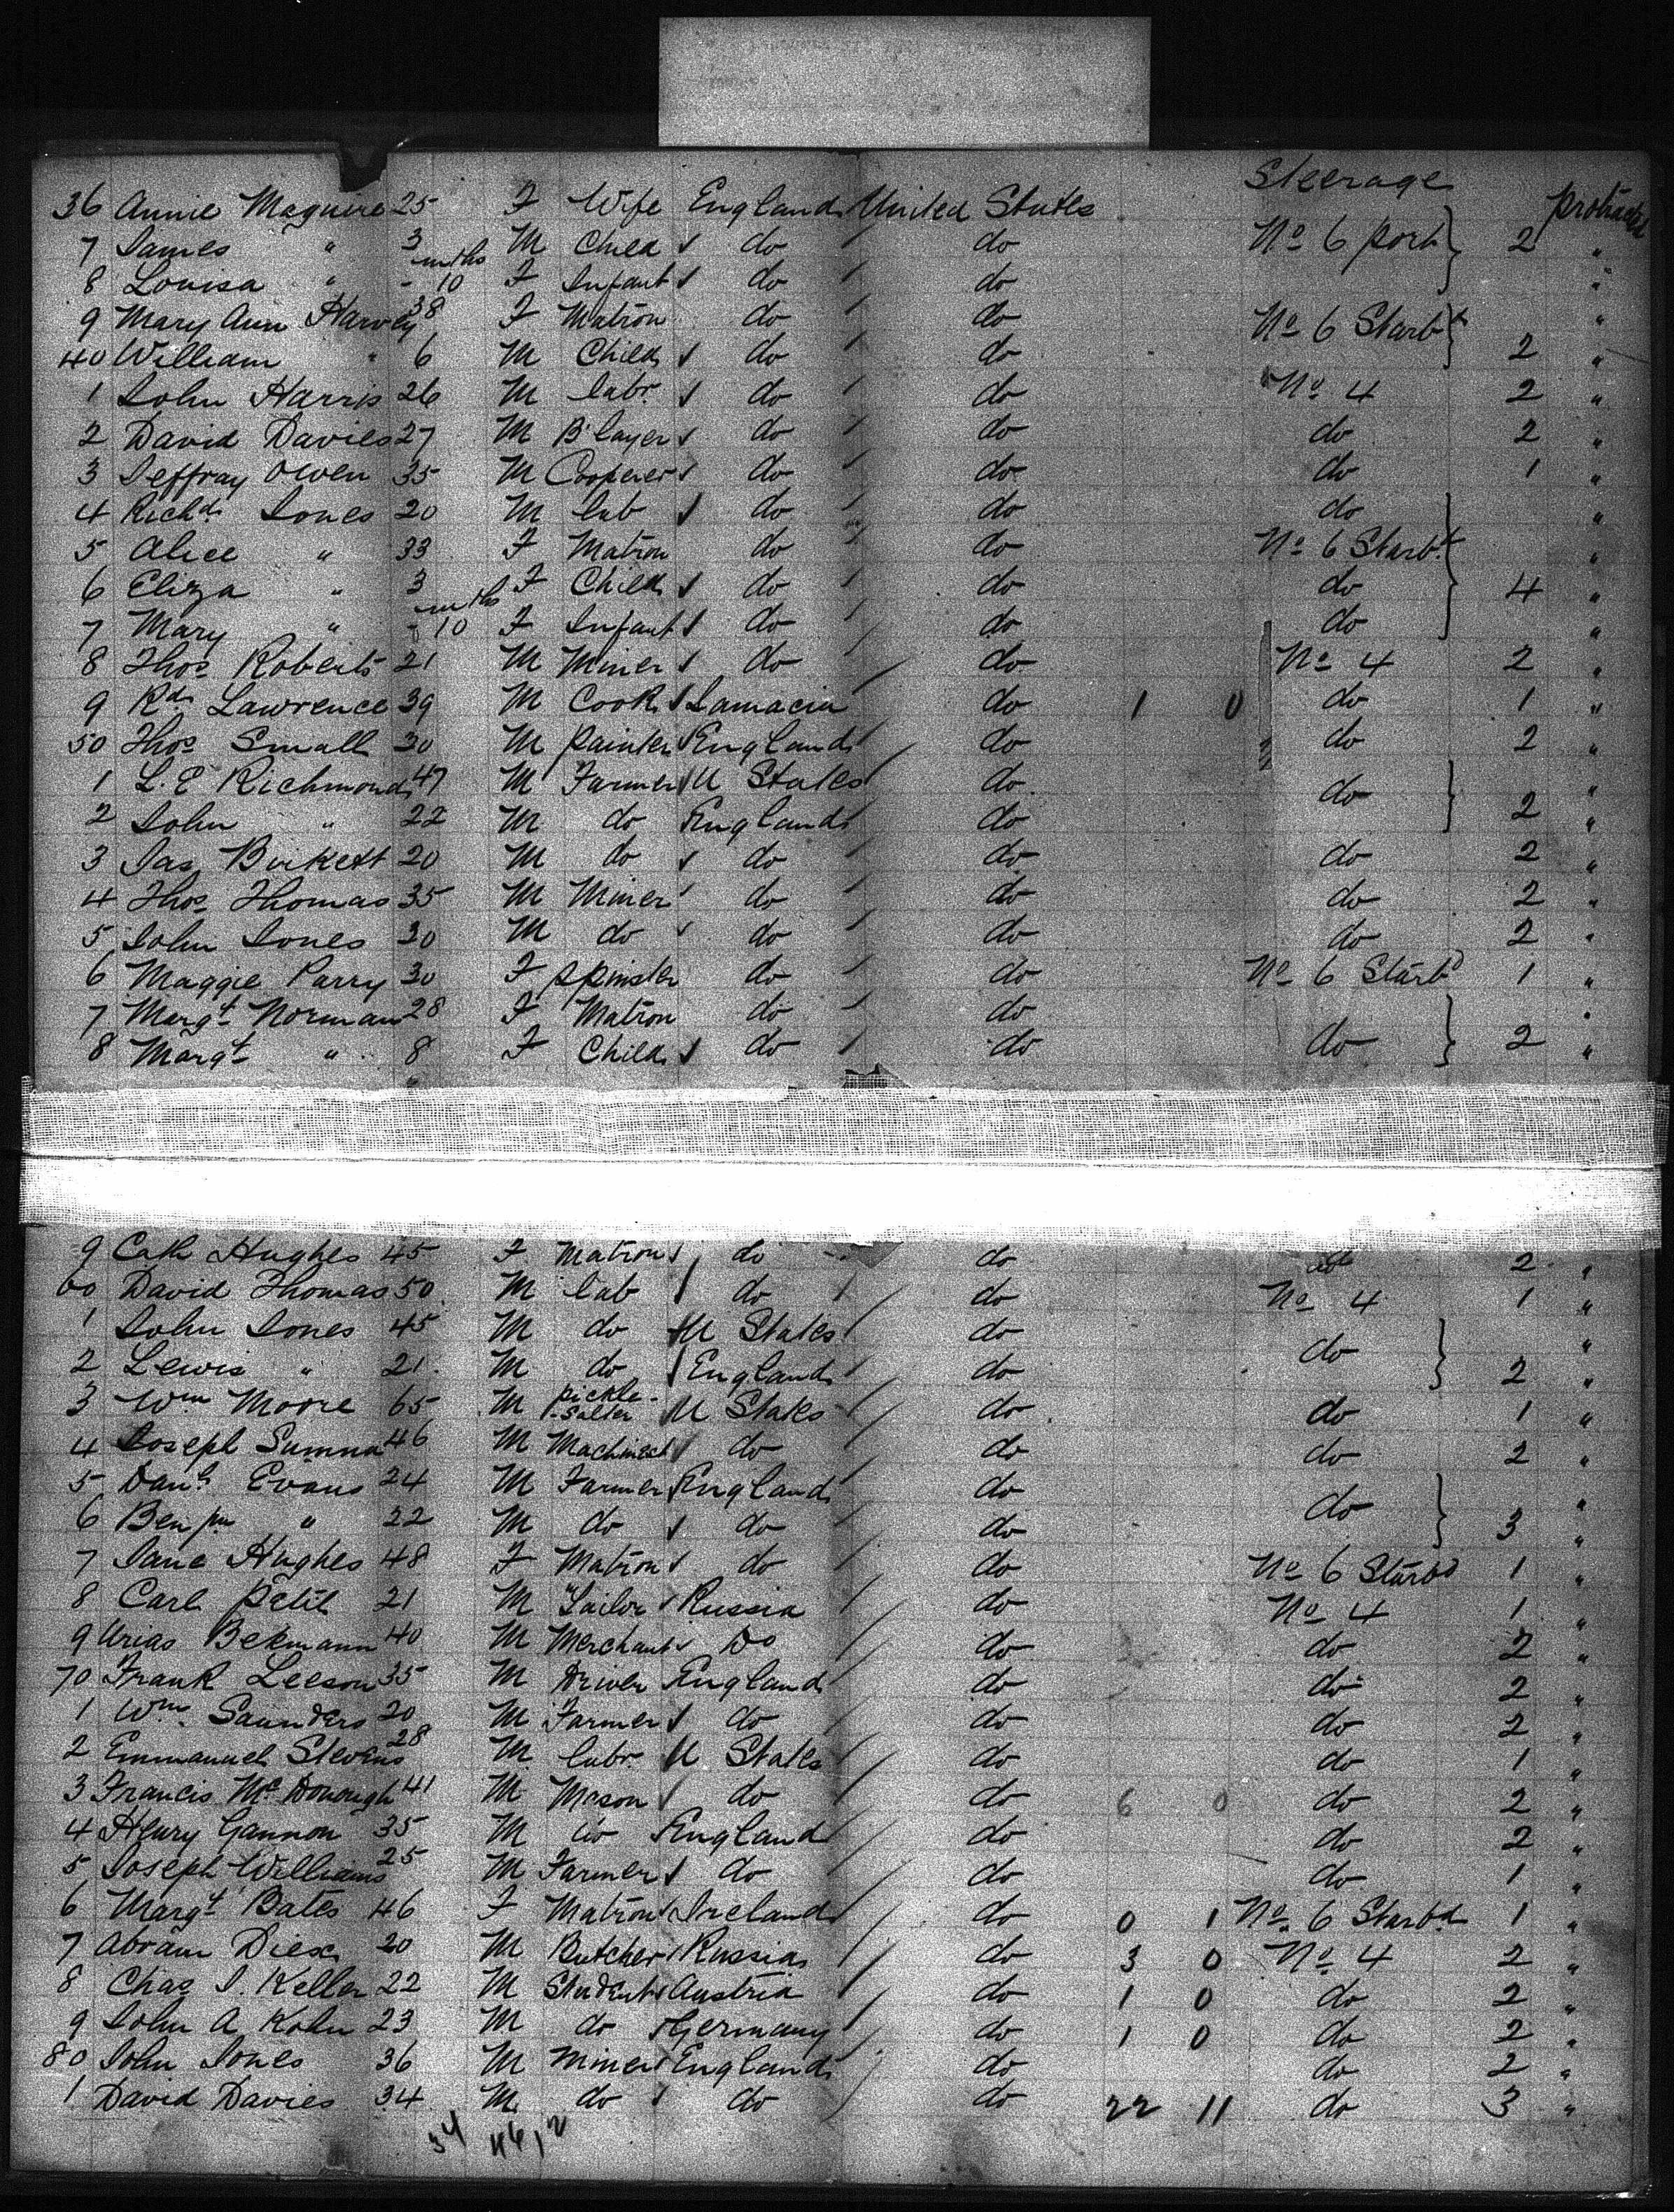 Steerage protracted
36 Annie Maguire 25 F Wife England United States
7 James " 3 M Child do do No 6 port 2 "
8 Louisa " mths - 10 F Infant do do "
9 Mary Ann Harvey 38 F Matron do do No 6 Starbd "
40 William " 6 M Child do do 2 "
1 John Harris 26 M labr. do do No 4 2 "
2 David Davies 27 M B'layer do do do 2 "
3 Jeffray Owen 35 M Cooperer do do do 1 "
4 Richd. Jones 20 M lab do do do "
5 Alice " 33 F Matron do do No 6 Starbd "
6 Eliza " 3 F Child do do do 4 "
7 Mary " mths - 10 F Infant do do do "
8 Thos Roberts 21 M Miner do do No 4 2 "
9 Rd. Lawrence 39 M Cook Jamacia do 1 0 do 1 "
50 Thos Small 30 M painter England do do 2 "
1 L. E Richmond 47 M Farmer U States do do "
2 John " 22 M do England do 2 "
3 Jas Birkett 20 M do do do do 2 "
4 Thos Thomas 35 M Miner do do do 2 "
5 John Jones 30 M do do do do 2 "
6 Maggie Parry 30 F Spinster do do No 6 Starbd 1 "
7 Margt Norman 28 F Matron do do "
8 Margt " 8 F Child do do do 2 "
9 Cath Hughes 45 F Matron do do do 2 "
60 David Thomas 50 M lab do do No 4 1 "
1 John Jones 45 M do U States do do "
2 Lewis " 21 M do England do 2 "
3 Wm Moore 65 M pickle-salter U States do do 1 "
4 Joseph Sumna 46 M Machinest do do do 2 "
5 Danl. Evans 24 M Farmer England do do "
6 Benjn " 22 M do do do 3 "
7 Jane Hughes 48 F Matron do do No 6 Starbd 1 "
8 Carl Petit 21 M Tailor Russia do No 4 1 "
9 Urias Bekmann 40 M Merchant Do do do 2 "
70 Frank Leeson 35 M Driver England do do 2 "
1 Wm. Saunders 20 M Farmer do do do 2 "
2 Emmanuel Stevens 28 M labr. U States do do 1 "
3 Francis McDonough 41 M Mason do do 6 0 do 2 "
4 Henry Gannon 35 M do England do do 2 "
5 Joseph Williams 25 M Farmer do do do 1 "
6 Margt Bates 46 F Matron Ireland do 0 1 No. 6 Starbd 1 "
7 Abram Diex 20 M Butcher Russia do 3 0 No. 4 2 "
8 Chas J. Keller 22 M Student Austria do 1 0 do 2 "
9 John A Kohn 23 M do Germany do 1 0 do 2 "
80 John Jones 36 M Miner England do do 2 "
1 David Davies 34 M. do do do 22 11 do 3 "
34